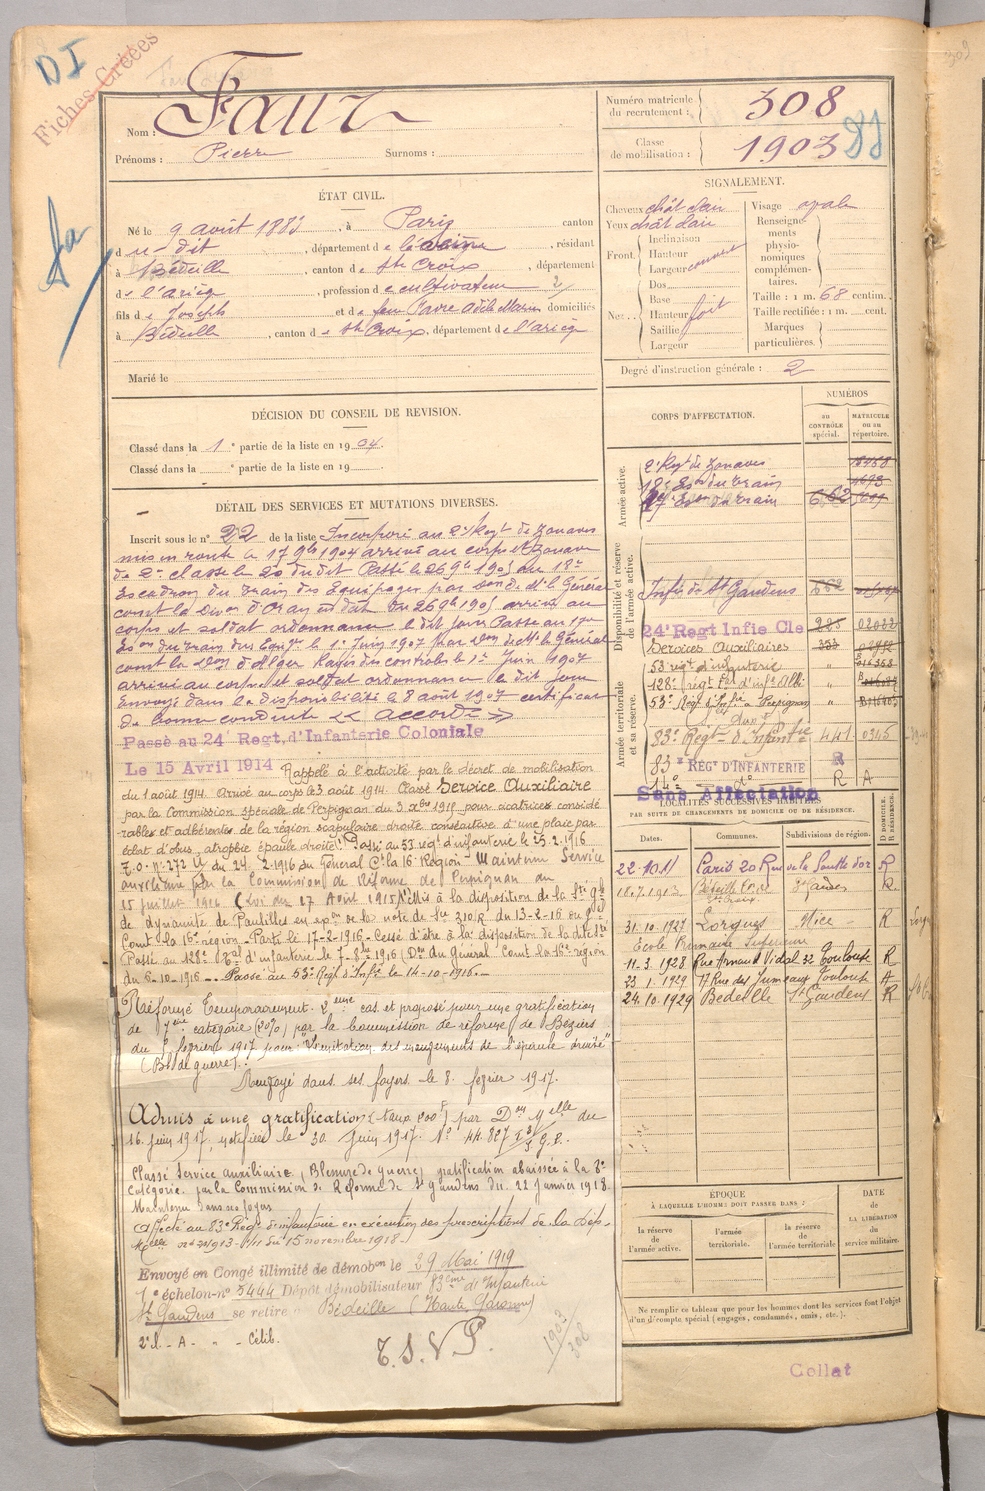 DI
Fiches Créées
Nom : Faur
Prénoms : Pierre Surnoms :
Numéro matricule du recrutement : 308
Classe de mobilisation : 1903
ÉTAT CIVIL.
Né le 9 août 1883, à Paris canton
du dit, département de la Seine, résidant
à Bédeille, canton de Ste Croix, département
de l'ariège, profession de cultivateur
fils de Joseph et de feu Favre Adèle Marie domiciliés
à Bédeille, canton de Ste Croix, département de l'ariège
Marié le
SIGNALEMENT.
Cheveux chât clair Visage ovale
Yeux chât clair Renseignements physionomiques complémentaires.
Front. Inclinaison
Hauteur
Largeur
Nez .. Dos
Base
Hauteur fort
Saillie
Largeur
Taille : 1 m. 68 centim.
Taille rectifiée : 1 m. cent.
Marques particulières.
Degré d'instruction générale : 2
DÉCISION DU CONSEIL DE REVISION.
Classé dans la 1e partie de la liste en 1904.
Classé dans la e partie de la liste en 19
CORPS D'AFFECTATION.
NUMÉROS
au CONTRÔLE spécial.
MATRICULE ou au répertoire.
Armée active.
2e Regt de Zouaves
18e Eson du train
17e Eson du train 662
Disponibilité et réserve de l'armée active.
Infie de St Gaudens 662
24e Regt Infie Cle
Services Auxiliaires
53 regt d'infanterie
Armée territoriale et sa réserve.
128e régt d'infie Albi
53e Régt d'Infie à Perpignan
83e Regt d'Infanterie 441 0345
83e REGt D'INFANTERIE R
R A
Sans Affectation
DÉTAIL DES SERVICES ET MUTATIONS DIVERSES.
Inscrit sous le n° 22 de la liste Incorporé au 2e Regt de Zouaves
mis en route le 17 9bre 1904 arrivé au corps et Zouave
de 2e classe le 20 du dit Passé le 26 9bre 1905 au 18e
Escadron du train des Equipages par Don de Mr le Général
comt la Divon d'Oran en date du 26 9bre 1905 arrivé au
corps et soldat ordonnance le dit jour Passé au 17e
Eson du train des Equip. le 1er Juin 1907 par Don de Mr le Général
comt la Don d'Alger Rayé des contrôles le 1er Juin 1907
arrivé au corps et soldat ordonnance le dit jour
Envoyé dans la disponibilité le 8 août 1907 certificat
de bonne conduite « accordé »
Passé au 24e Regt. d'Infanterie Coloniale
Le 15 Avril 1914 Rappelé à l'activité par le décret de mobilisation
du 1 août 1914. Arrivé au corps le 3 août 1914. Classé Service Auxiliaire
par la Commission spéciale de Perpignan du 3 Xbre 1915 pour cicatrices considé
rables et adhérentes de la région scapulaire droite consécutive d'une plaie par
éclat d'obus, atrophie épaule droite. Passé au 53e regt d'infanterie le 25.2.1916
du 24.2.1916 du Général Ct la 16e Région - Maintenu Service
auxiliaire par la Commission de Réforme de Perpignan du
15 juillet 1916 (Loi du 17 Août 1915) Mis à la disposition de la Sté Gle
de dynamite de Paulilles en exon de la note de Sce 310 R du 13-2-16 du Gal
Comt la 16e région - Parti le 17-2-1916 - Cessé d'être à la disposition de la dite Sté
Passé au 128e Regt d'infanterie le 7-8bre 1916 (Don du Général Comt la 16e région
du 6-10-1916 - Passé au 53e Régt d'Infie le 14-10-1916.
Réformé Temporairement 2eme cas. et proposé pour une gratification
de 7eme catégorie (20%) par la Commission de réforme de Béziers
du 8 février 1917 pour : "Limitation des mouvements de l'épaule droite"
(Bles de guerre).
Renvoyé dans ses foyers le 8 février 1917.
Admis à une gratification (taux 200f) par Don Melle du
16 juin 1917, notifiée le 30 Juin 1917. N° 44.827
Classé Service Auxiliaire (Blessure de guerre) gratification abaissée à la 8e
catégorie par la Commission de Réforme de St Gaudens du 22 Janvier 1918.
Maintenu dans ses foyers
Affecté au 83e Régt d'infanterie en exécution des prescriptions de la Dép.
Melle du 15 novembre 1918
Envoyé en Congé illimité de démobon le 29 Mai 1919
7e échelon-n° 5444 Dépôt démobilisateur 83eme d'infanterie
St Gaudens se retire à Bédeille (Haute Garonne)
2e l - A - - - Célib.
T.S.V.P.
1903
308
LOCALITÉS SUCCESSIVES HABITÉES
PAR SUITE DE CHANGEMENTS DE DOMICILE OU DE RÉSIDENCE.
Dates. Communes. Subdivisions de région. D DOMICILE. R RÉSIDENCE.
22.10.11 Paris 20 Rue de la Goutte d'or R
18.7.1913 Bédeille Con de Ste Croix St Gaudens R
31.10.1927 Lorgues Nice R
Ecole Primaire Supérieure
11-3.1928 Rue Arnaud Vidal 32 Toulouse R
23.1.1929 17 Rue des Jumeaux Toulouse A
24.10.1929 Bédeille St Gaudens R
ÉPOQUE
À LAQUELLE L'HOMME DOIT PASSER DANS :
la réserve de l'armée active.
l'armée territoriale.
la réserve de l'armée territoriale
DATE de LA LIBÉRATION du service militaire.
Ne remplir ce tableau que pour les hommes dont les services font l'objet
d'un décompte spécial (engagés, condamnés, omis, etc.).
Collat